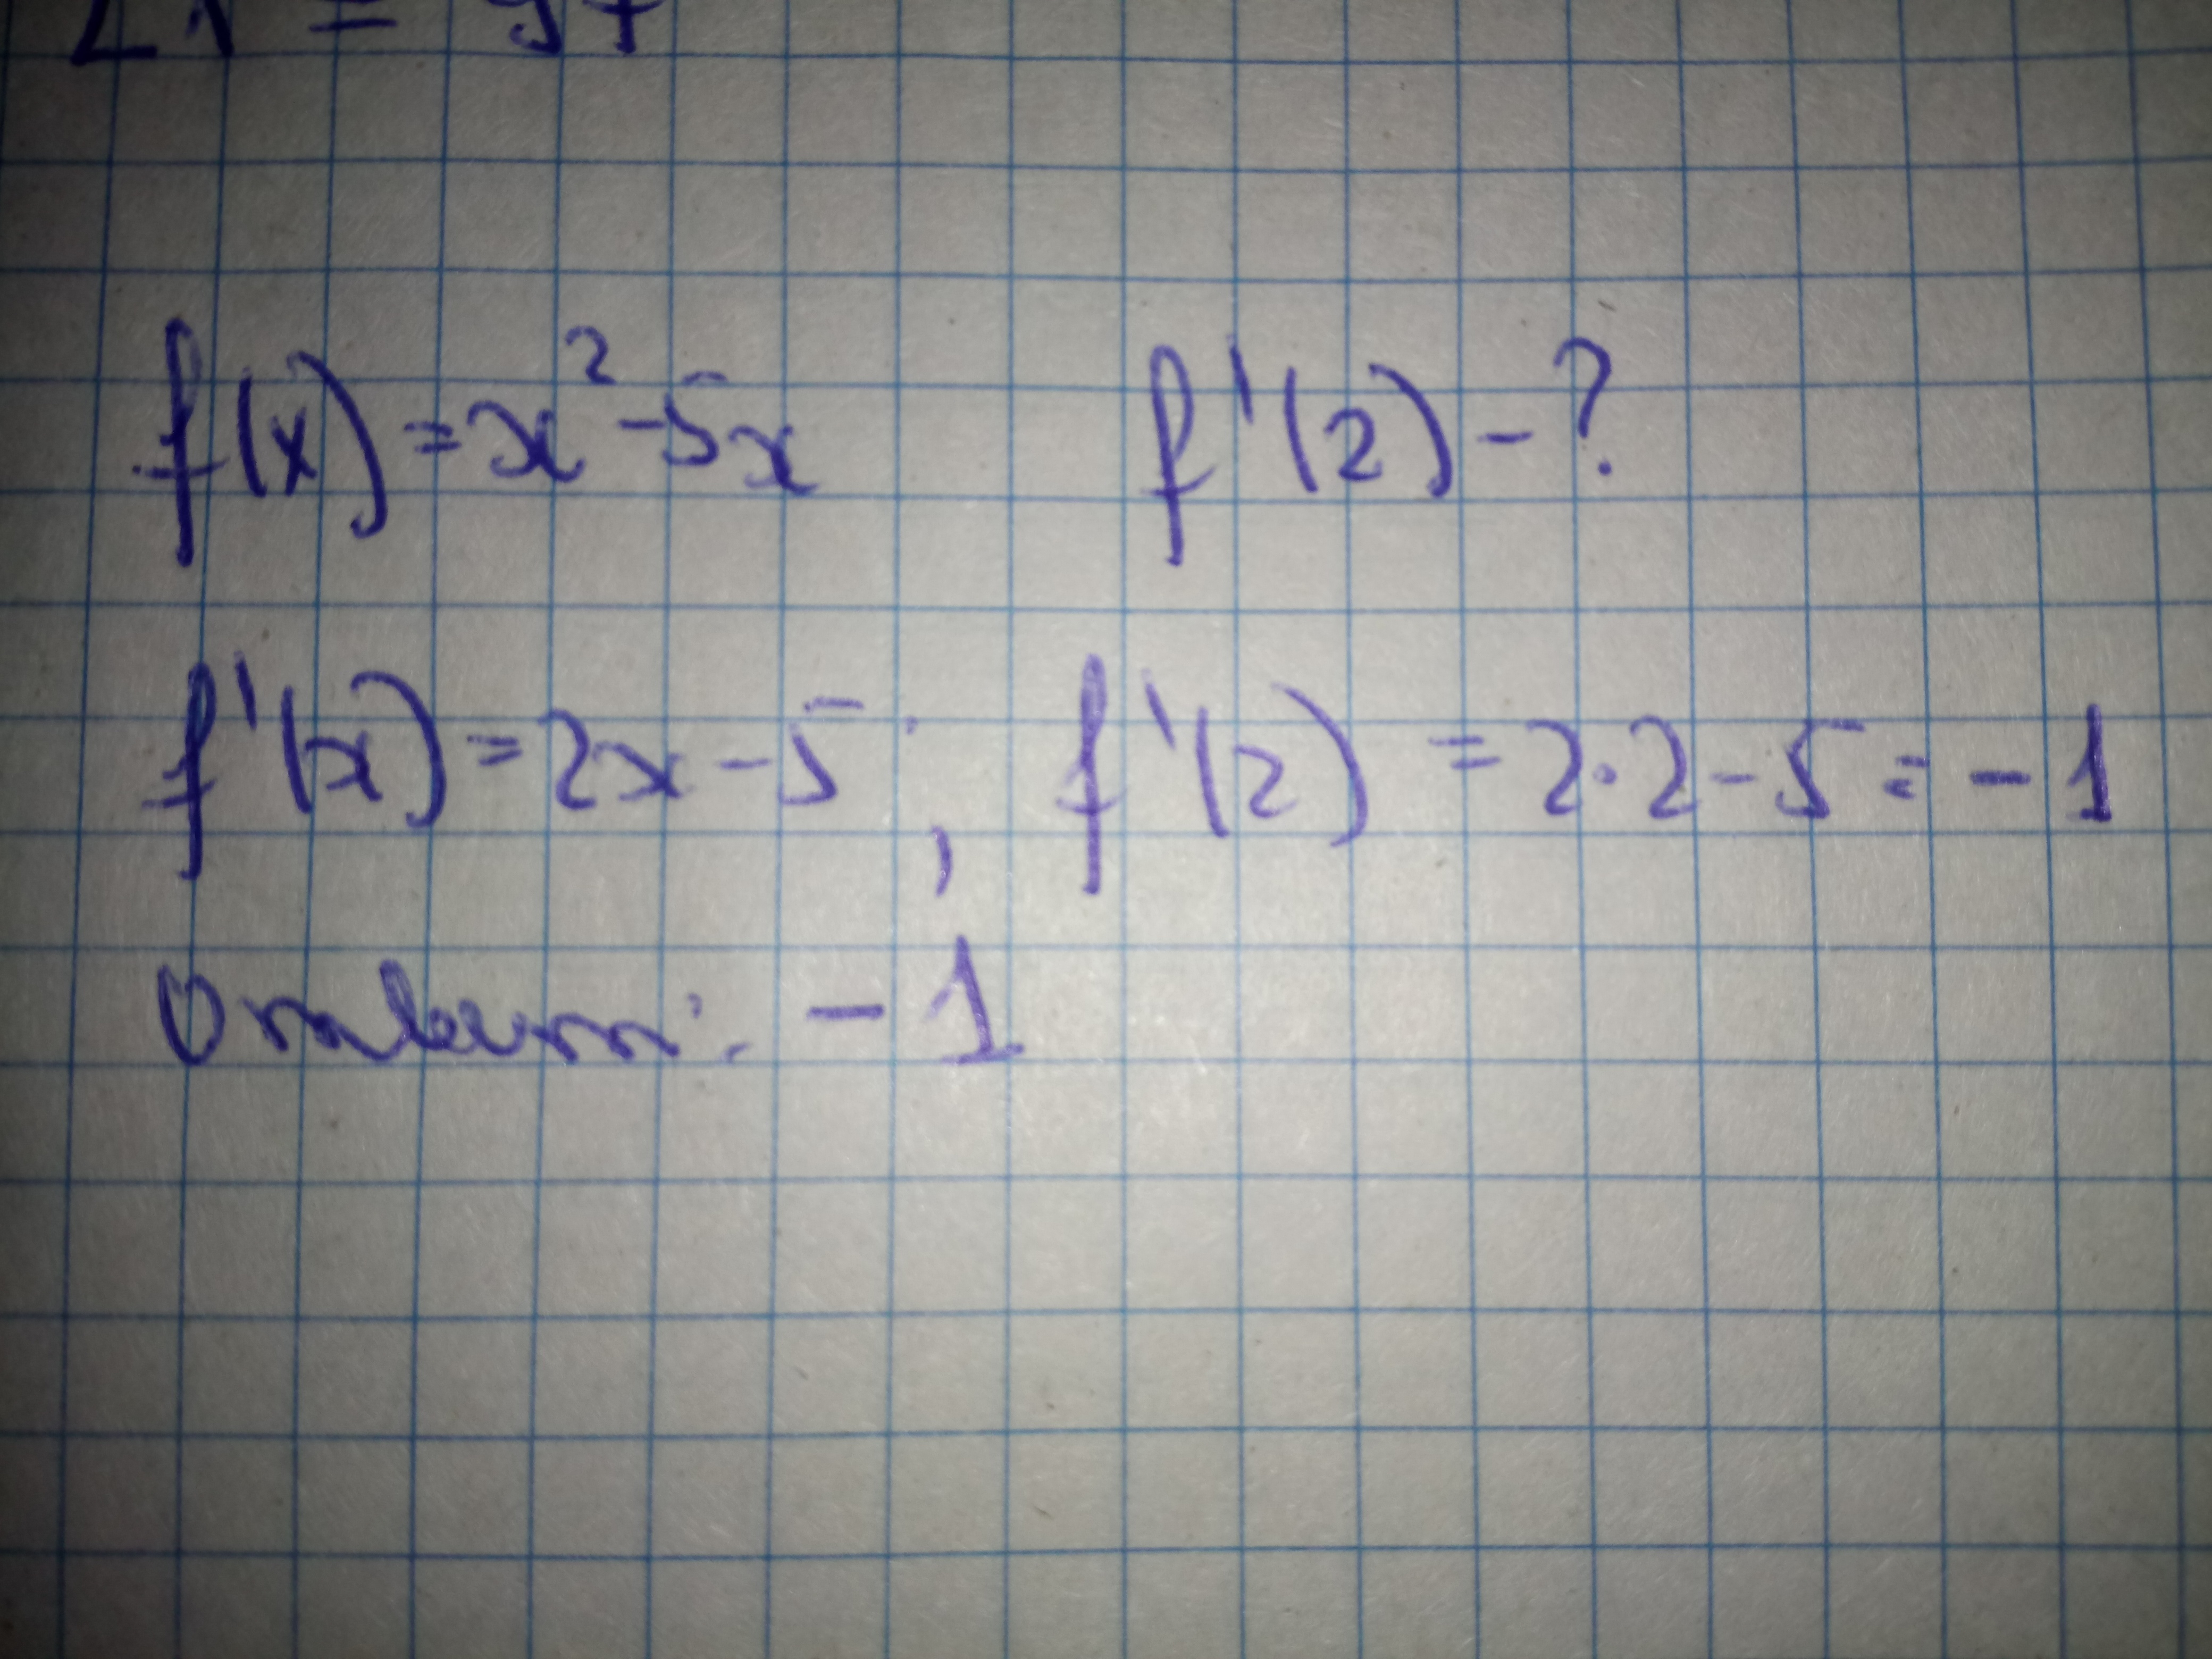 f(x)=x²-5x f'(2)-?
f'(x)=2x-5; f'(2)=2·2-5=-1
Ответ: -1